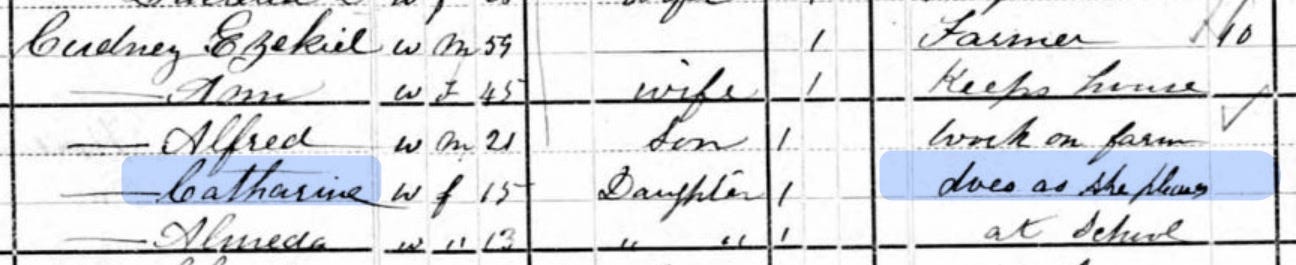 Cudney Ezekiel w m 59 1 Farmer 10
— Ann w F 45 wife 1 Keeps house
— Alfred w m 21 Son 1 work on farm
— Catharine w f 15 Daughter 1 does as she pleases
— Almeda w " 13 " " 1 at School